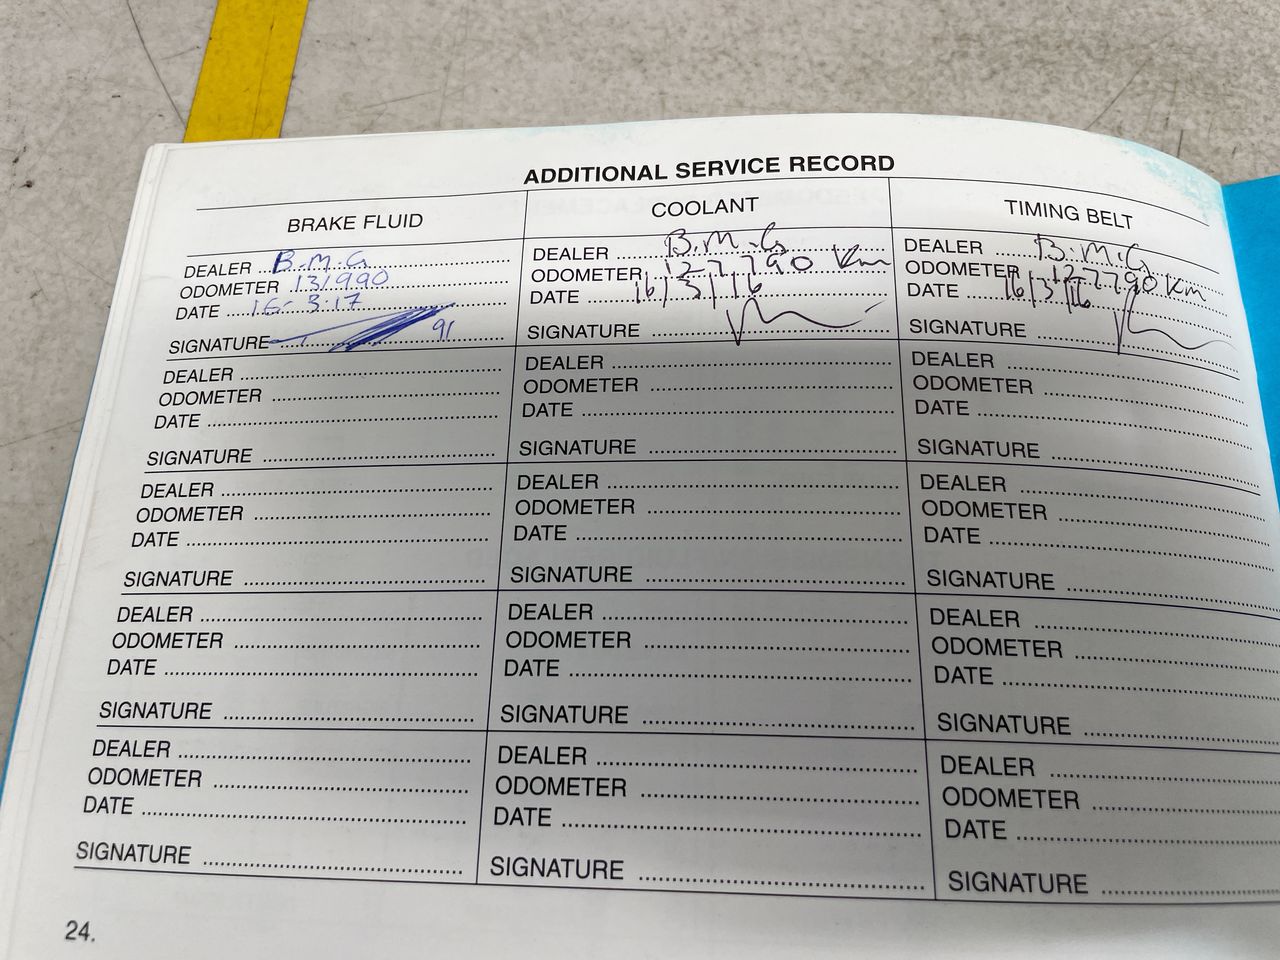 ADDITIONAL SERVICE RECORD
BRAKE FLUID
DEALER B.M.G
ODOMETER 131990
DATE 16-3.17
SIGNATURE
DEALER
ODOMETER
DATE
SIGNATURE
DEALER
ODOMETER
DATE
SIGNATURE
DEALER
ODOMETER
DATE
SIGNATURE
DEALER
ODOMETER
DATE
SIGNATURE
COOLANT
DEALER B.M.G
ODOMETER 127790 Km
DATE 16/3/16
SIGNATURE
DEALER
ODOMETER
DATE
SIGNATURE
DEALER
ODOMETER
DATE
SIGNATURE
DEALER
ODOMETER
DATE
SIGNATURE
DEALER
ODOMETER
DATE
SIGNATURE
TIMING BELT
DEALER B.M.G
ODOMETER 127790 Km
DATE 16/3/16
SIGNATURE
DEALER
ODOMETER
DATE
SIGNATURE
DEALER
ODOMETER
DATE
SIGNATURE
DEALER
ODOMETER
DATE
SIGNATURE
DEALER
ODOMETER
DATE
SIGNATURE
24.